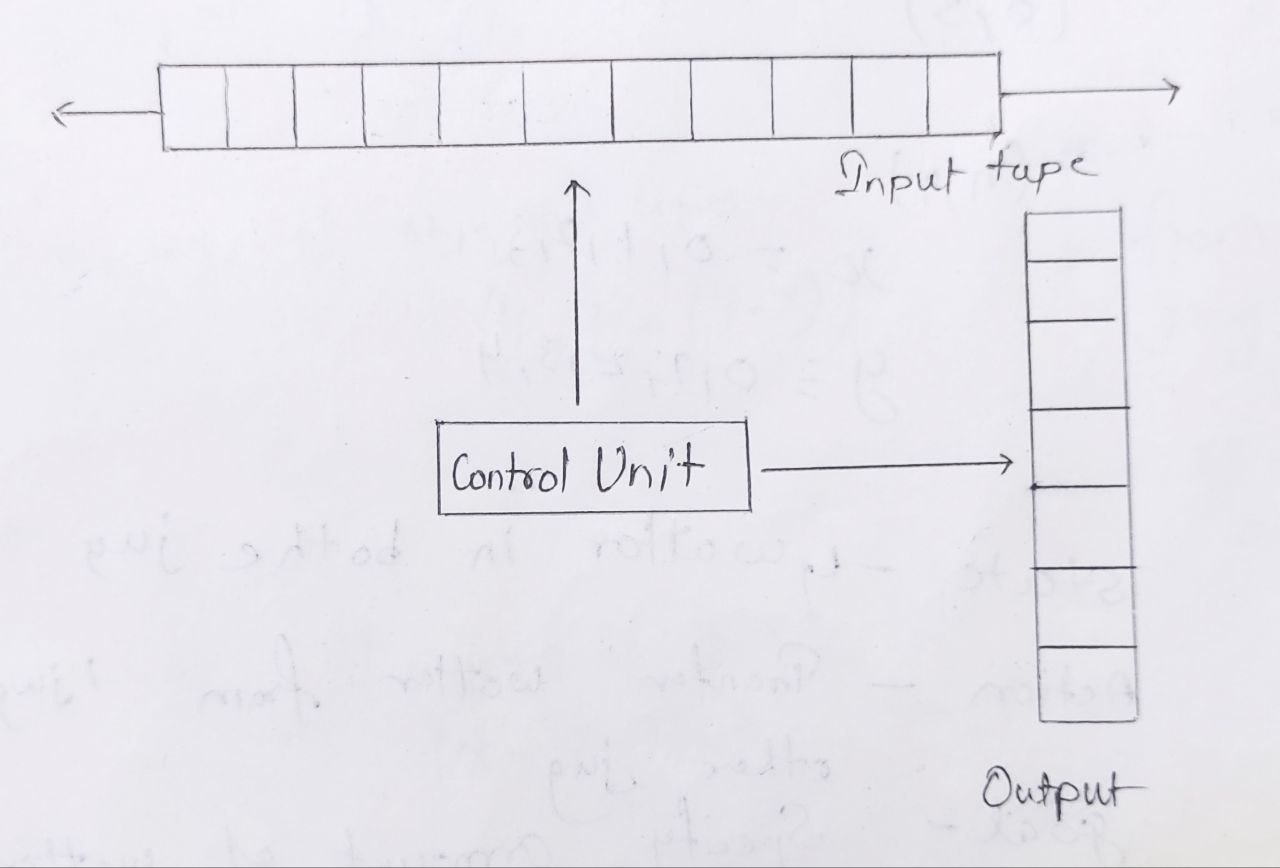 Input tape
Control Unit
Output